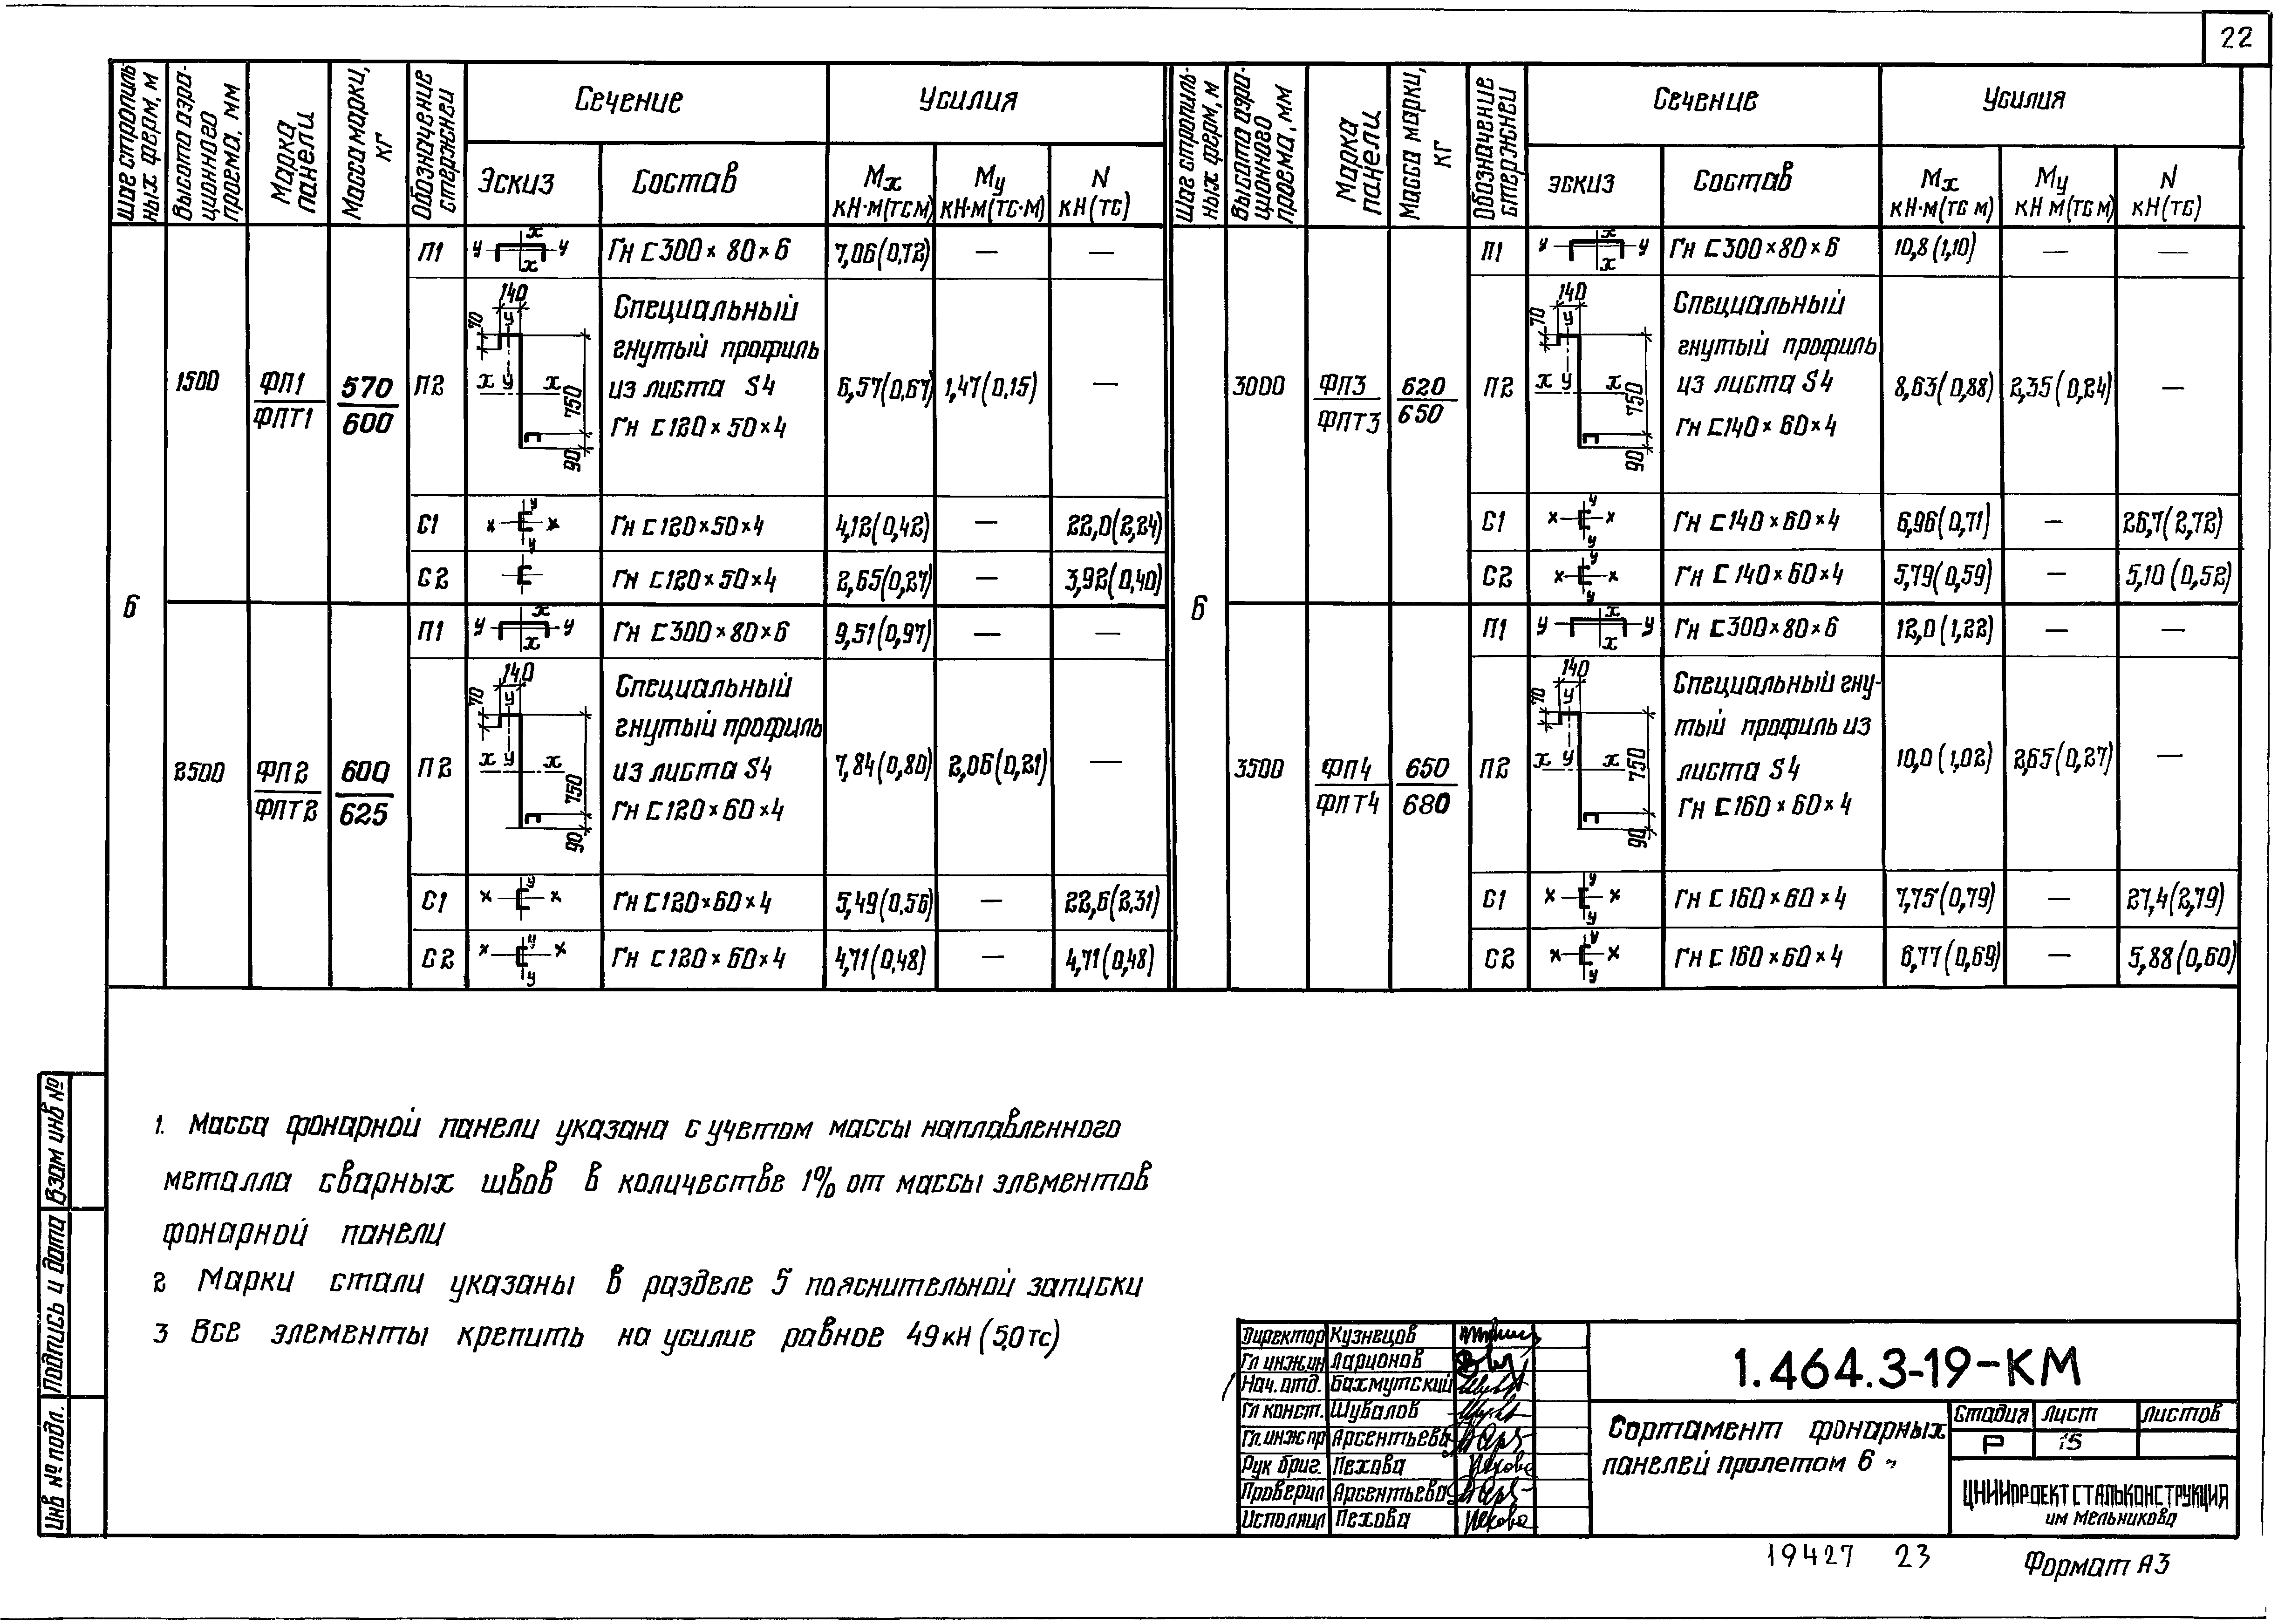 22
Шаг стропиль-
ных ферм, м
Высота аэра-
ционного
проема, мм
Марка
панели
Масса марки,
кг
Обозначение
стержней
Сечение
Усилия
Эскиз
Состав
Mx
кН·м(тс м)
My
кН·м(тс·м)
N
кН(тс)
6
1500
ФП1
ФПТ1
570
600
П1
у х у
х
Гн [ 300 × 80 × 6
7,06(0,72)
—
—
П2
140
70
у
х у х
750
90
Специальный
гнутый профиль
из листа S4
Гн [ 120 × 50 × 4
6,57(0,67)
1,47(0,15)
—
С1
х у х
у
Гн [ 120 × 50 × 4
4,12(0,42)
—
22,0(2,24)
С2
Гн [ 120 × 50 × 4
2,65(0,27)
—
3,92(0,40)
2500
ФП2
ФПТ2
600
625
П1
у х у
х
Гн [ 300 × 80 × 6
9,51(0,97)
—
—
П2
140
70
у
х у х
750
90
Специальный
гнутый профиль
из листа S4
Гн [ 120 × 60 × 4
7,84(0,80)
2,06(0,21)
—
С1
х у х
Гн [ 120 × 60 × 4
5,49(0,56)
—
22,6(2,31)
С2
х у х
у
Гн [ 120 × 60 × 4
4,71(0,48)
—
4,71(0,48)
Шаг стропиль-
ных ферм, м
Высота аэра-
ционного
проема, мм
Марка
панели
Масса марки,
кг
Обозначение
стержней
Сечение
Усилия
эскиз
Состав
Mx
кН·м(тс м)
My
кН м(тс м)
N
кН(тс)
6
3000
ФП3
ФПТ3
620
650
П1
у х у
х
Гн [ 300 × 80 × 6
10,8(1,10)
—
—
П2
140
70
у
х у х
750
90
Специальный
гнутый профиль
из листа S4
Гн [ 140 × 60 × 4
8,63(0,88)
2,35(0,24)
—
С1
х у х
у
Гн [ 140 × 60 × 4
6,96(0,71)
—
26,7(2,72)
С2
х у х
у
Гн [ 140 × 60 × 4
5,79(0,59)
—
5,10(0,52)
3500
ФП4
ФПТ4
650
680
П1
у у
х
Гн [ 300 × 80 × 6
12,0(1,22)
—
—
П2
140
70
у
х у х
750
90
Специальный гну-
тый профиль из
листа S4
Гн [ 160 × 60 × 4
10,0(1,02)
2,65(0,27)
—
С1
х у х
у
Гн [ 160 × 60 × 4
7,75(0,79)
—
27,4(2,79)
С2
х у х
у
Гн [ 160 × 60 × 4
6,77(0,69)
—
5,88(0,60)
1. Масса фонарной панели указана с учетом массы наплавленного
металла сварных швов в количестве 1% от массы элементов
фонарной панели
2 Марки стали указаны в разделе 5 пояснительной записки
3 Все элементы крепить на усилие равное 49 кН (5,0 тс)
Взам инв №
Подпись и дата
Инв № подл.
Директор Кузнецов
Гл инж.ин Ларионов
Нач. отд. Бахмутский
Гл конст. Шувалов
Гл.инж пр Арсентьева
Рук бриг. Пехова
Проверил Арсентьева
Исполнил Пехова
1.464.3-19-КМ
Сортамент фонарных
панелей пролетом 6 м
Стадия Лист Листов
Р 15
ЦНИИПРОЕКТСТАЛЬКОНСТРУКЦИЯ
им Мельникова
19427 23
Формат А3